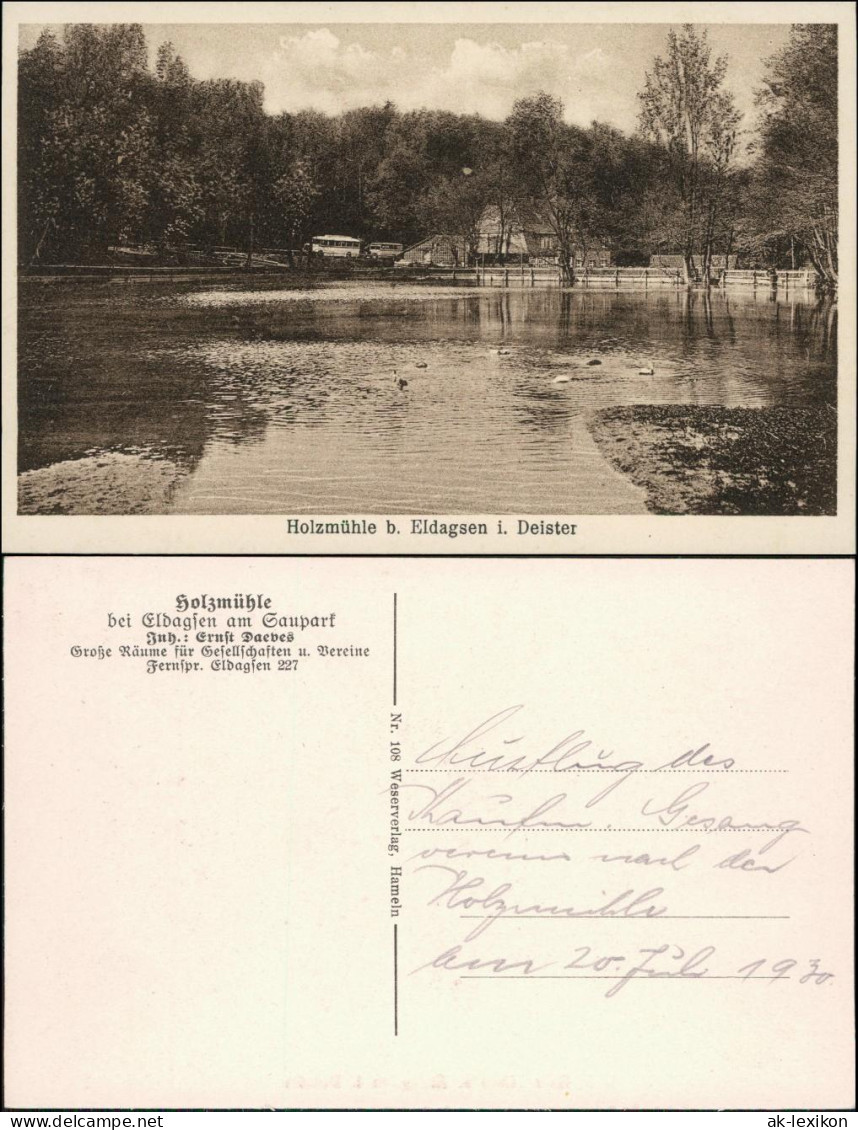 Holzmühle b. Eldagsen i. Deister
Holzmühle
bei Eldagsen am Saupark
Inh.: Ernst Daeves
Große Räume für Gesellschaften u. Vereine
Fernspr. Eldagsen 227
Nr. 108 Weserverlag, Hameln
Ausflug des
Kaufm. Gesang
vereins nach der
Holzmühle
am 20. Juli 1930
www.oldthing.de
ak-lexikon